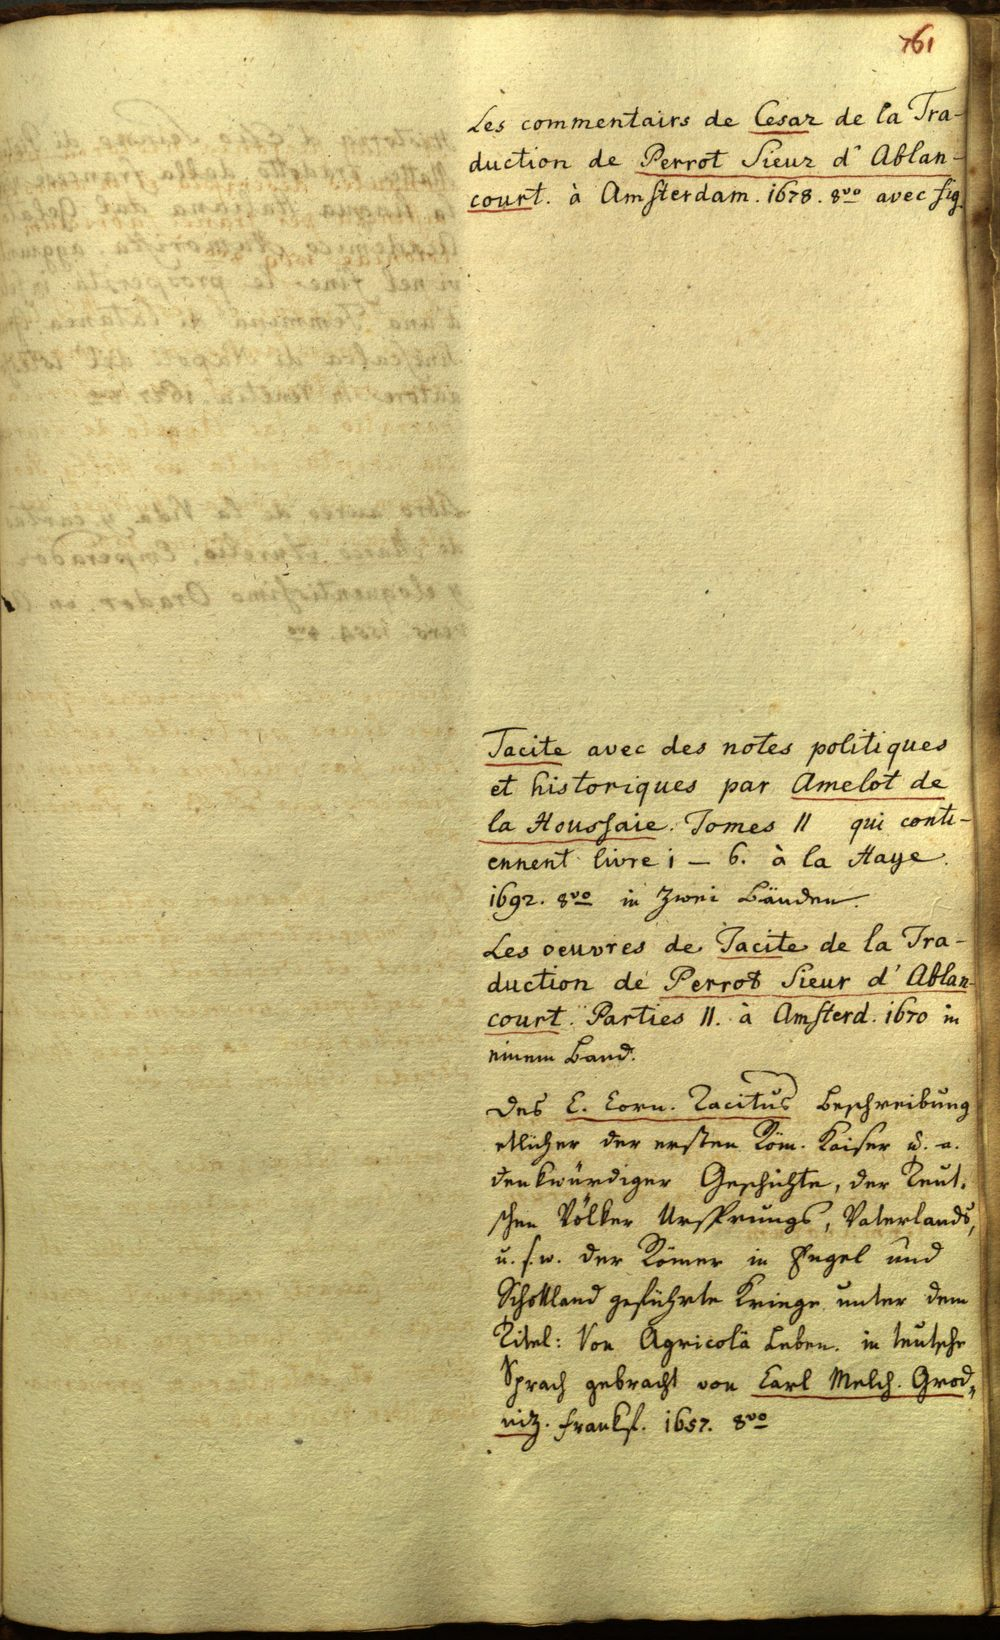 761
Les commentairs de Cesar de la Tra-
duction de Perrot Sieur d' Ablan-
court. à Amsterdam. 1678. 8vo avec fig.
Tacite avec des notes politiques
et historiques par Amelot de
la Houssaie. Tomes II qui conti-
ennent livre 1 – 6. à la Haye.
1692. 8vo in zwei Bänden.
Les oeuvres de Tacite de la Tra-
duction de Perrot Sieur d' Ablan-
court. Parties II. à Amsterd. 1670 in
einem Band.
Des C. Corn. Tacitus Beschreibung
etlicher der ersten Röm. Kaiser u. a.
denkwürdiger Geschichte, der Teut-
schen Völker Ursprungs, Vaterlands,
u. s. w. der Römer in Engel und
Schottland geführte Kriege unter dem
Titel: Von Agricolä Leben. in teutsche
Sprach gebracht von Carl Melch. Grod-
nitz. Frankf. 1657. 8vo